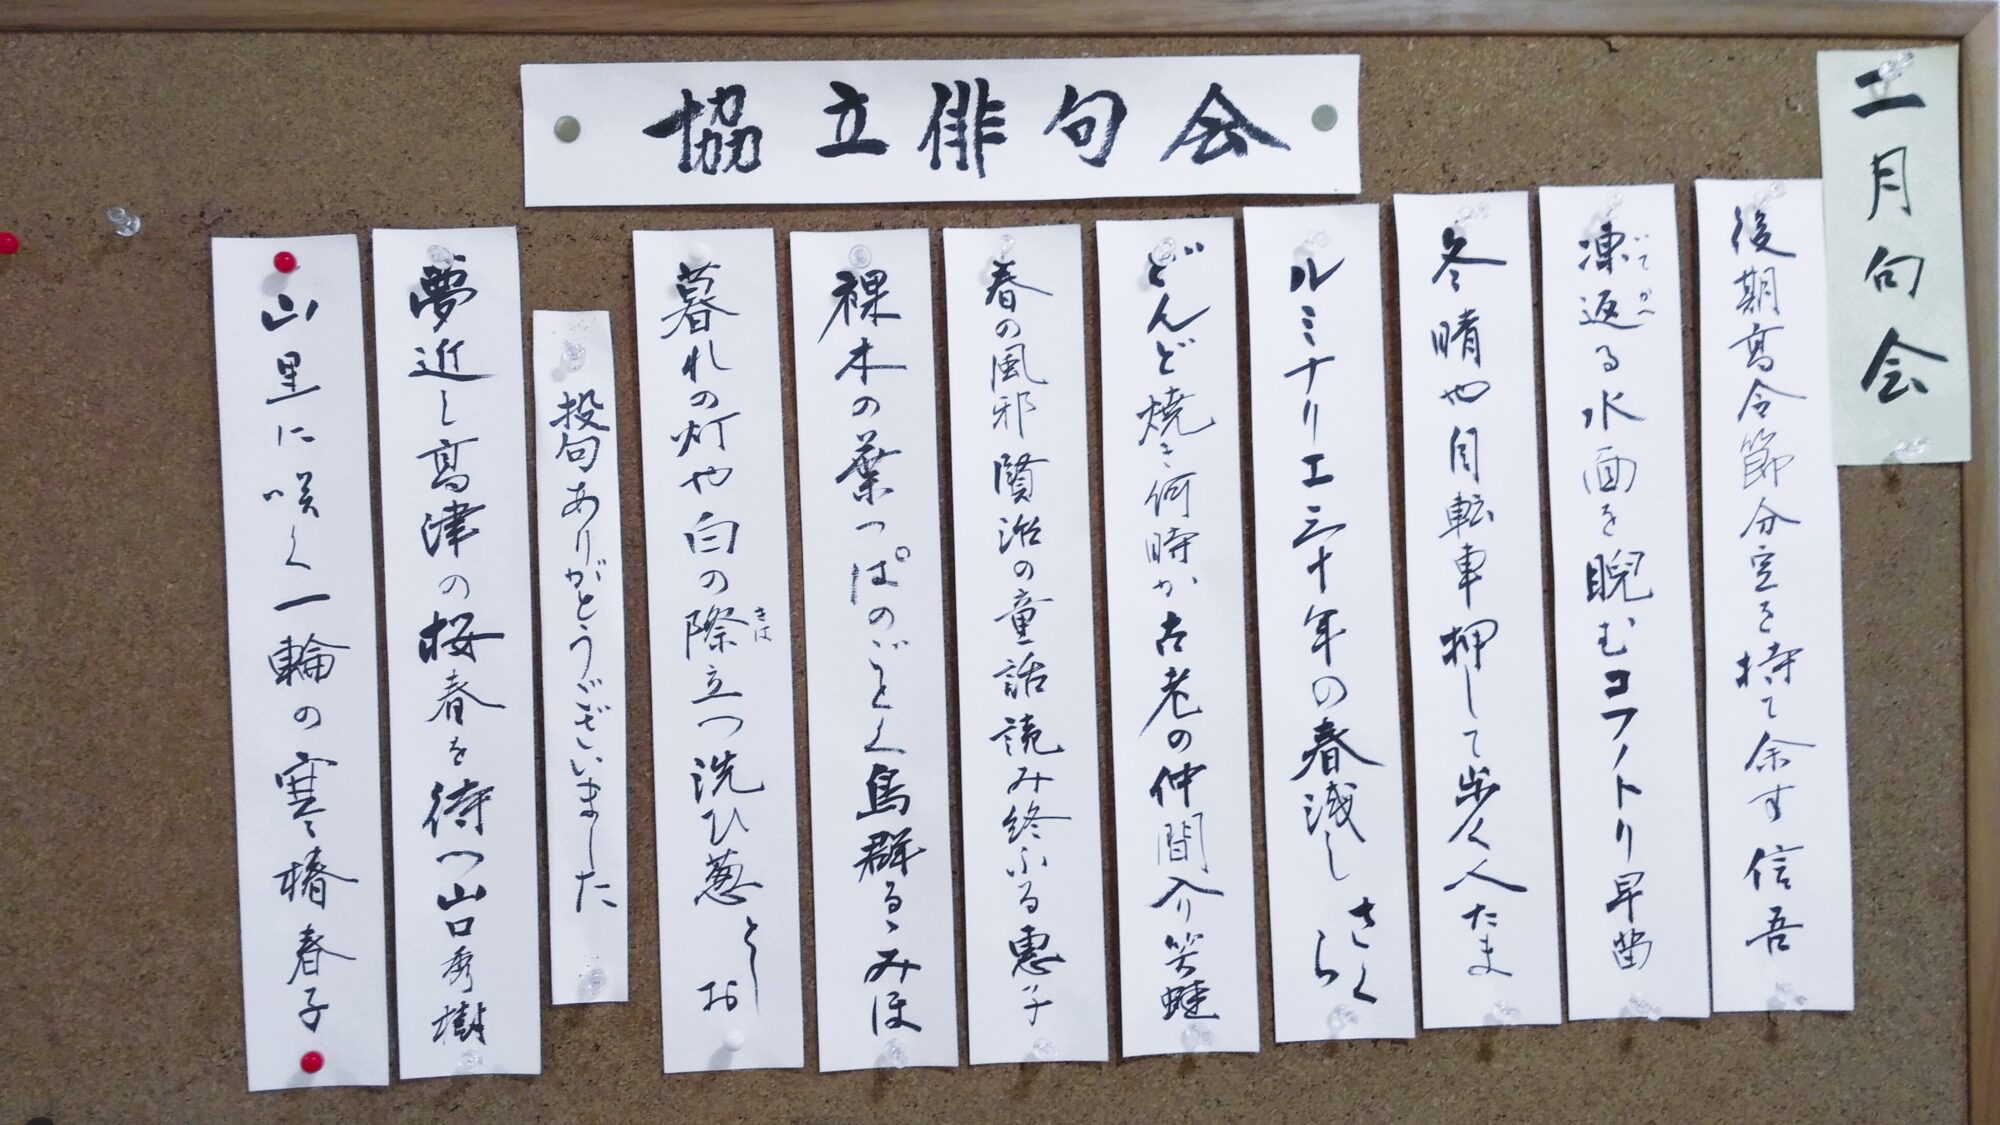 協立俳句会
二月句会
後期高令節分豆を持て余す 信吾
凍返る水面を睨むコフノトリ 早苗
いてかへ
冬晴や自転車押して歩く人 たま
ルミナリエ三十年の春浅し さくら
どんど焼き何時か古老の仲間入り 笑蛙
春の風邪賢治の童話読み終ふる 恵子
裸木の葉っぱのごとく鳥群るゝ みほ
暮れの灯や白の際立つ洗ひ葱 としお
きは
投句ありがとうございました
夢近し高津の桜春を待つ 山口秀樹
山里に咲く一輪の寒椿 春子